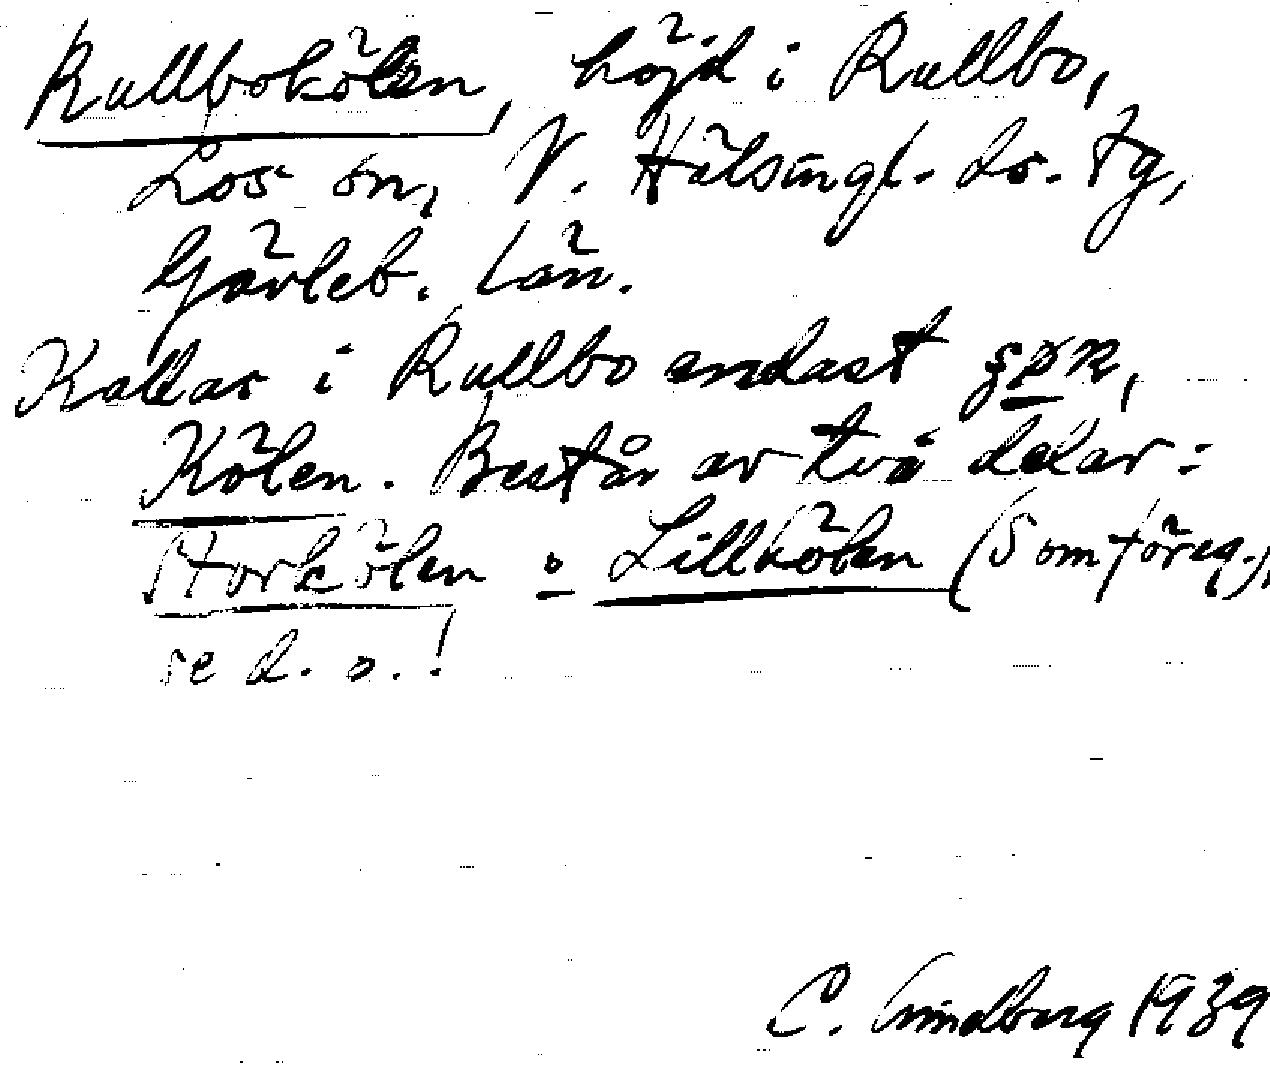 Rullbokölen, höjd i Rullbo,
Los sn, V. Hälsingl. ds. tg,
Gävleb. län.
Kallas i Rullbo endast
Kölen. Består av två delar:
Storkölen o Lillkölen (Som föreg.),
se d. o.!
C. 1939